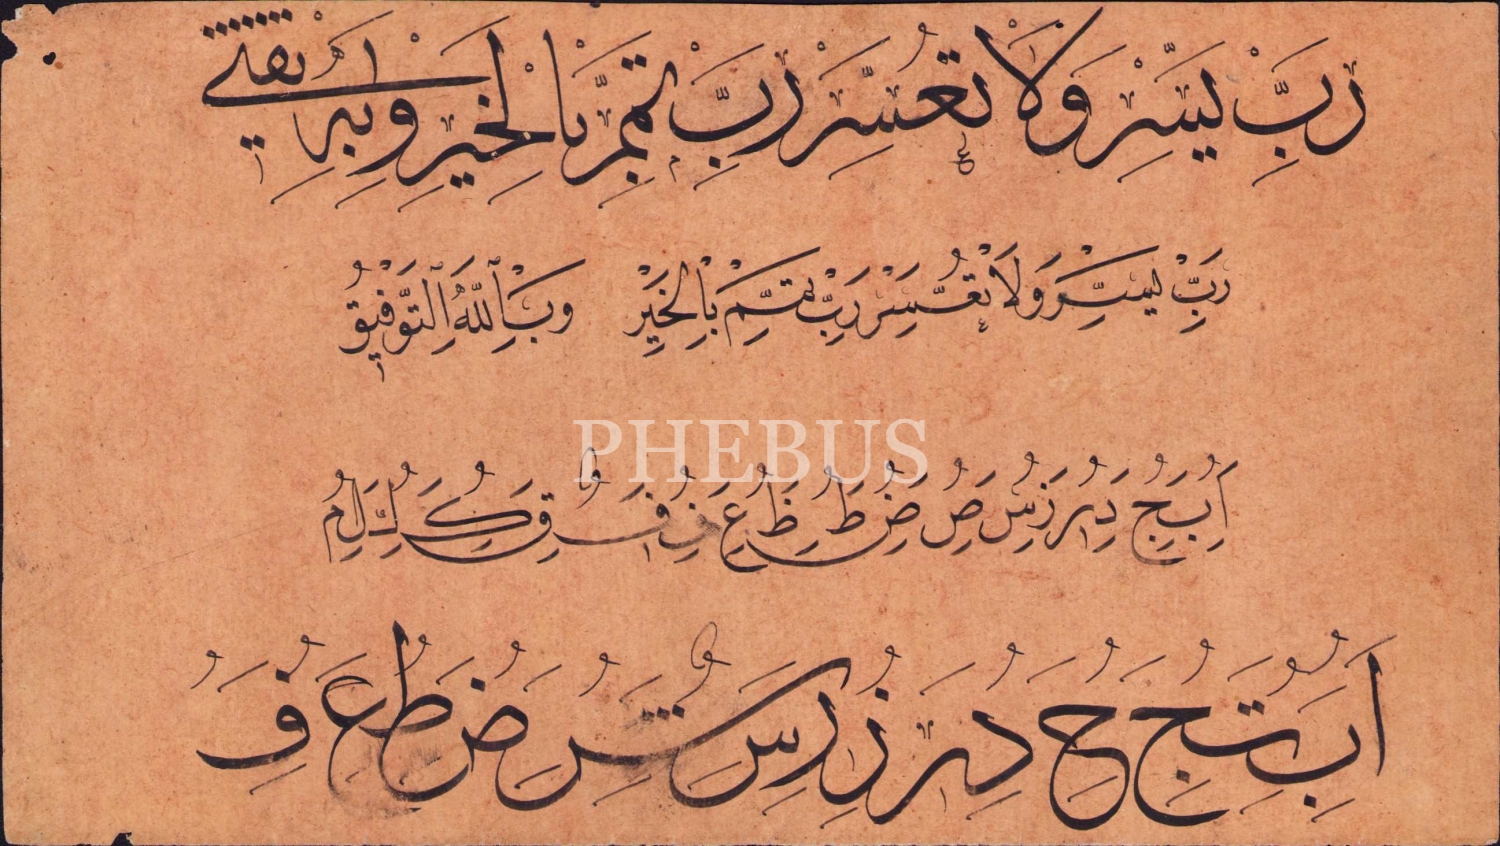 رَبِّ يَسِّرْ وَلَا تُعَسِّرْ رَبِّ تَمِّمْ بِالْخَيْرِ وَبِهِ ثقتي
رَبِّ يَسِّرْ وَلَا تُعَسِّرْ رَبِّ تَمِّمْ بِالْخَيْرِ وَبِاللّٰهِ التَّوْفِيقُ
PHEBUS
ا ب ج د ر ز س ص ض ط ظ ع ف ق ك ل م
ا ب ت ج ح د ر ز س ش ص ض ط ع ف